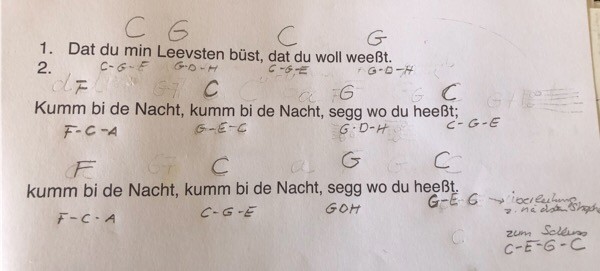 C G C G
1. Dat du min Leevsten büst, dat du woll weeßt.
2. C-G-E G-D-H C-G-E G-D-H
F C G C
Kumm bi de Nacht, kumm bi de Nacht, segg wo du heeßt;
F-C-A G-E-C G-D-H C-G-E
F C G C
kumm bi de Nacht, kumm bi de Nacht, segg wo du heeßt.
F-C-A C-G-E GDH G-E-G → Überleitung
z. nächsten Strophe
zum Schluss
C-E-G-C